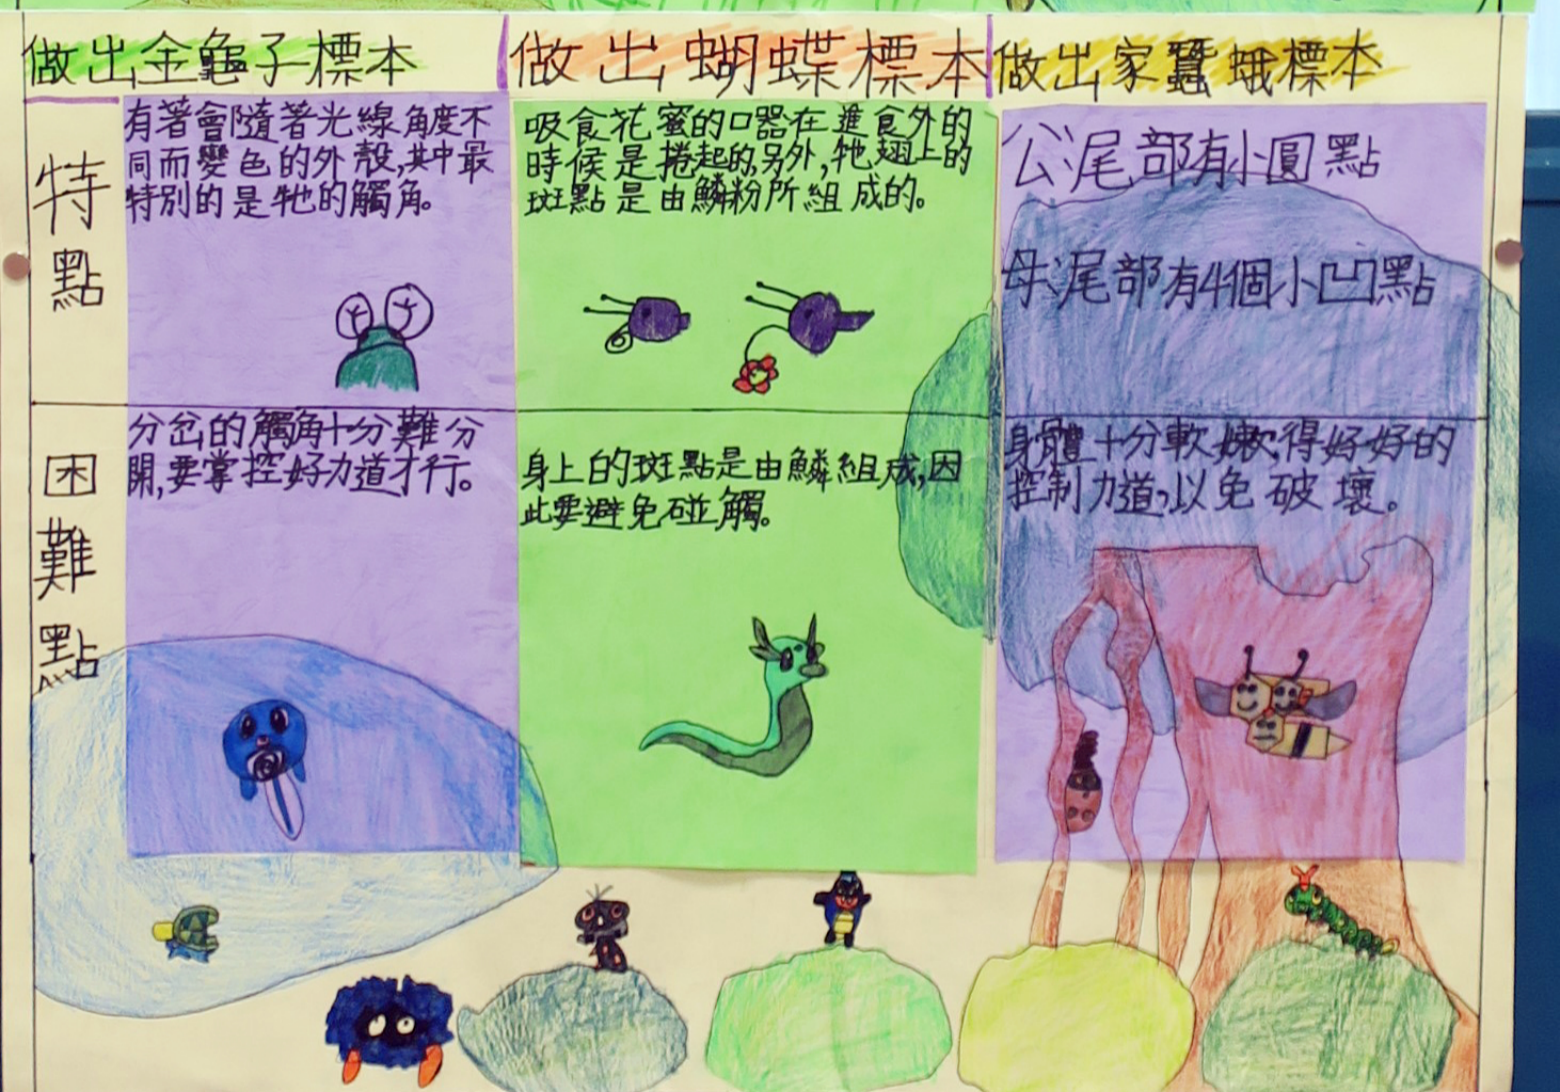 做出金龜子標本
做出蝴蝶標本
做出家蠶蛾標本
特點
有著會隨著光線角度不
同而變色的外殼,其中最
特別的是牠的觸角。
吸食花蜜的口器在進食外的
時候是捲起的,另外,牠翅上的
斑點是由鱗粉所組成的。
公:尾部有小圓點
母:尾部有4個小凹點
困難點
分岔的觸角十分難分
開,要掌控好力道才行。
身上的斑點是由鱗組成,因
此要避免碰觸。
身體十分軟嫩,得好好的
控制力道,以免破壞。